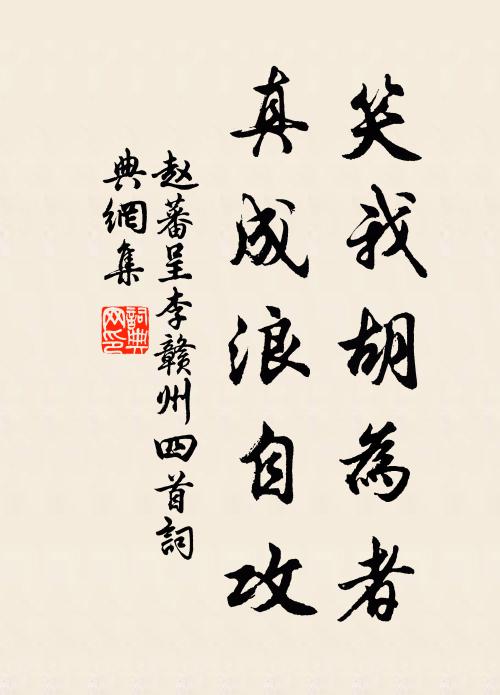 笑我胡為者
真成浪自攻
赵蕃呈李赣州四首詞
典網集
詞典網印